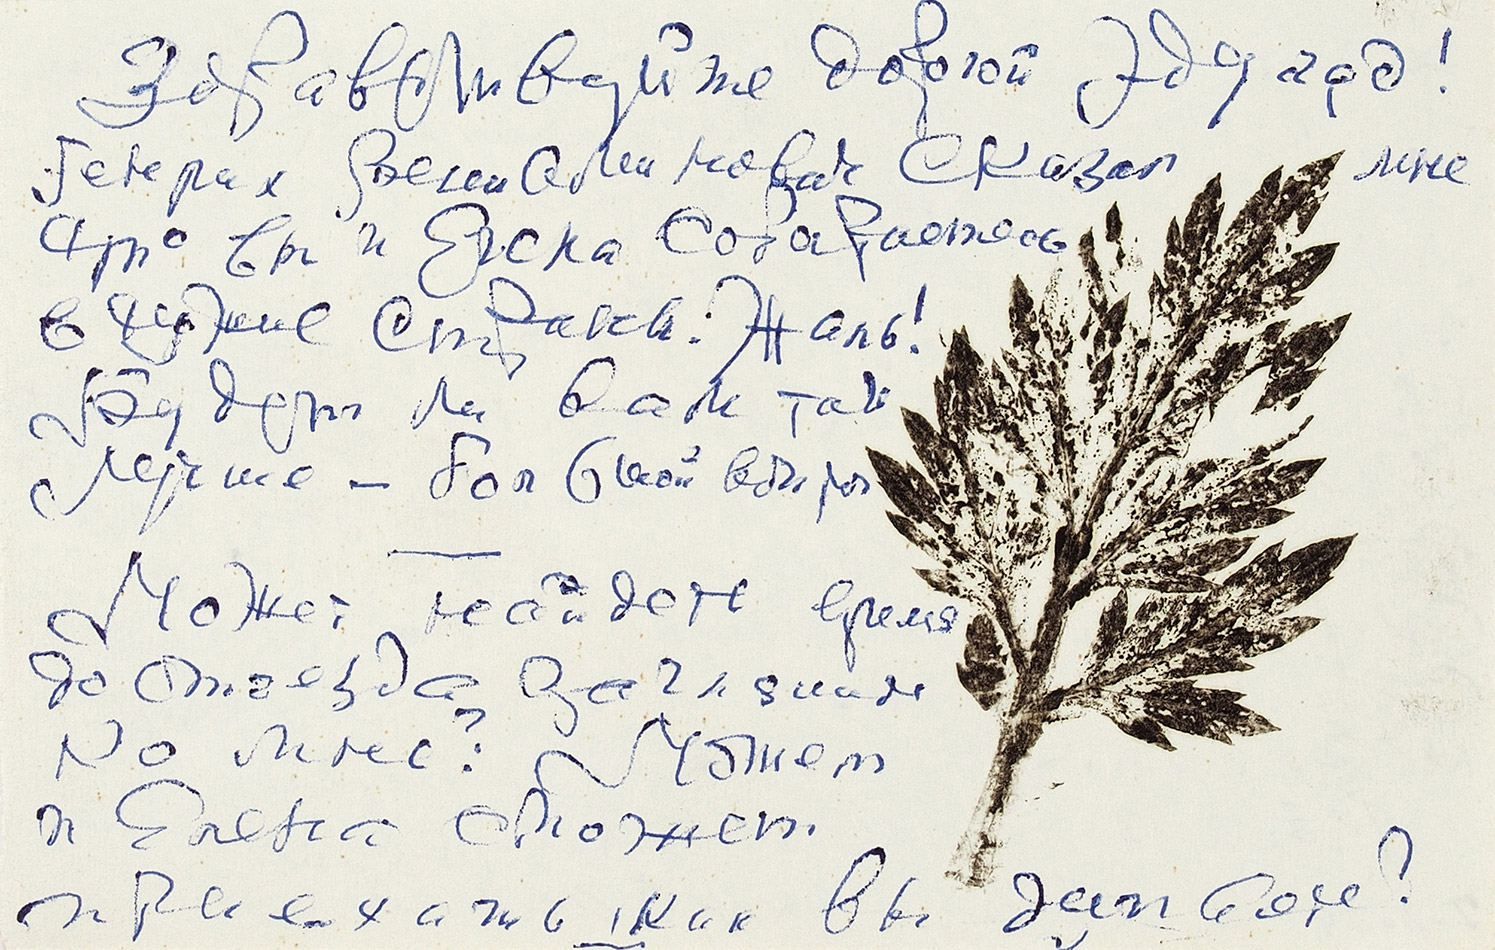 Здравствуйте дорогой Эдуард!
Генрих Вениаминович сказал мне
что вы и Елена собираетесь
в чужие страны. Жаль!
Будет ли вам там
лучше – большой вопрос
Может найдете время
до отъезда заглянуть
ко мне? Может
и Елена сможет
приехать как вы думаете?